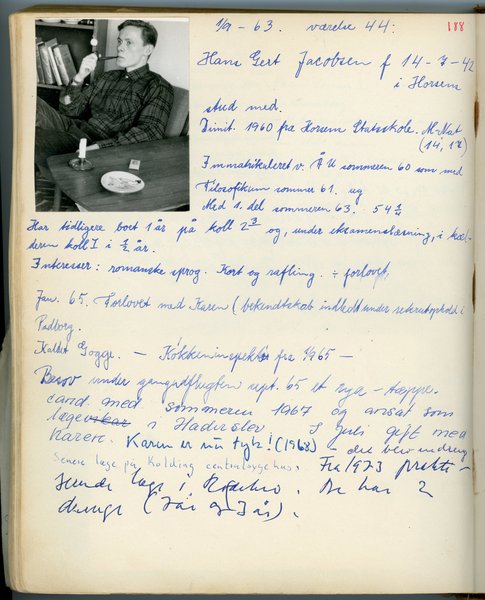 1/9 - 63. værelse 44:
188
Hans Gert Jacobsen f 14-7-42
i Horsens
stud med.
Dimit. 1960 fra Horsens Statsskole. M-Nat
(14,17)
Immatrikuleret v. ÅU sommeren 60 som med
Filosofikum sommer 61. ug
Med 1. del sommeren 63.
Har tidligere boet 1 år på koll 2 og, under eksamenslæsning, i kæl-
deren koll I i ½ år.
Interesser: romanske sprog. Kort og rafling. ÷ forlovet.
Jan. 65. Forlovet med Karen (bekendtskab indledt under rekrutophold i
Padborg.
Kaldet Gogge. — Køkkeninspektør fra 1965 —
Besov under gangudflugten sept. 65 et rya-tæppe.
cand. med sommeren 1967 og ansat som
læge i Haderslev. I juli gift med
Karen. Karen er nu tyk! (1968)
Senere læge på Kolding centralsygehus. Fra 1973 prakti-
serende læge i Rødekro. De har 2
drenge (